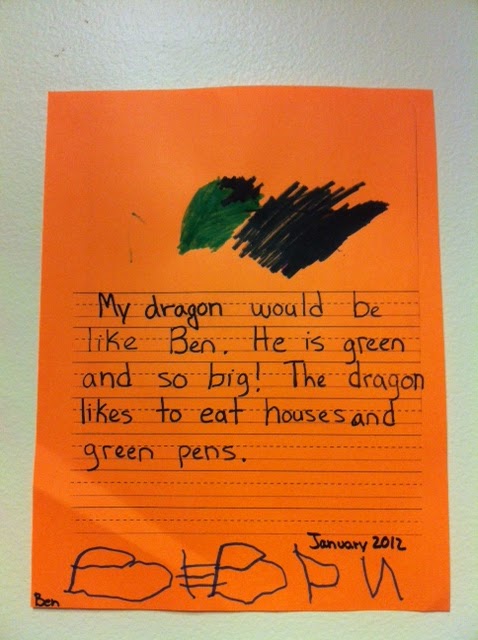 My dragon would be
like Ben. He is green
and so big! The dragon
likes to eat houses and
green pens.
January 2012
Ben